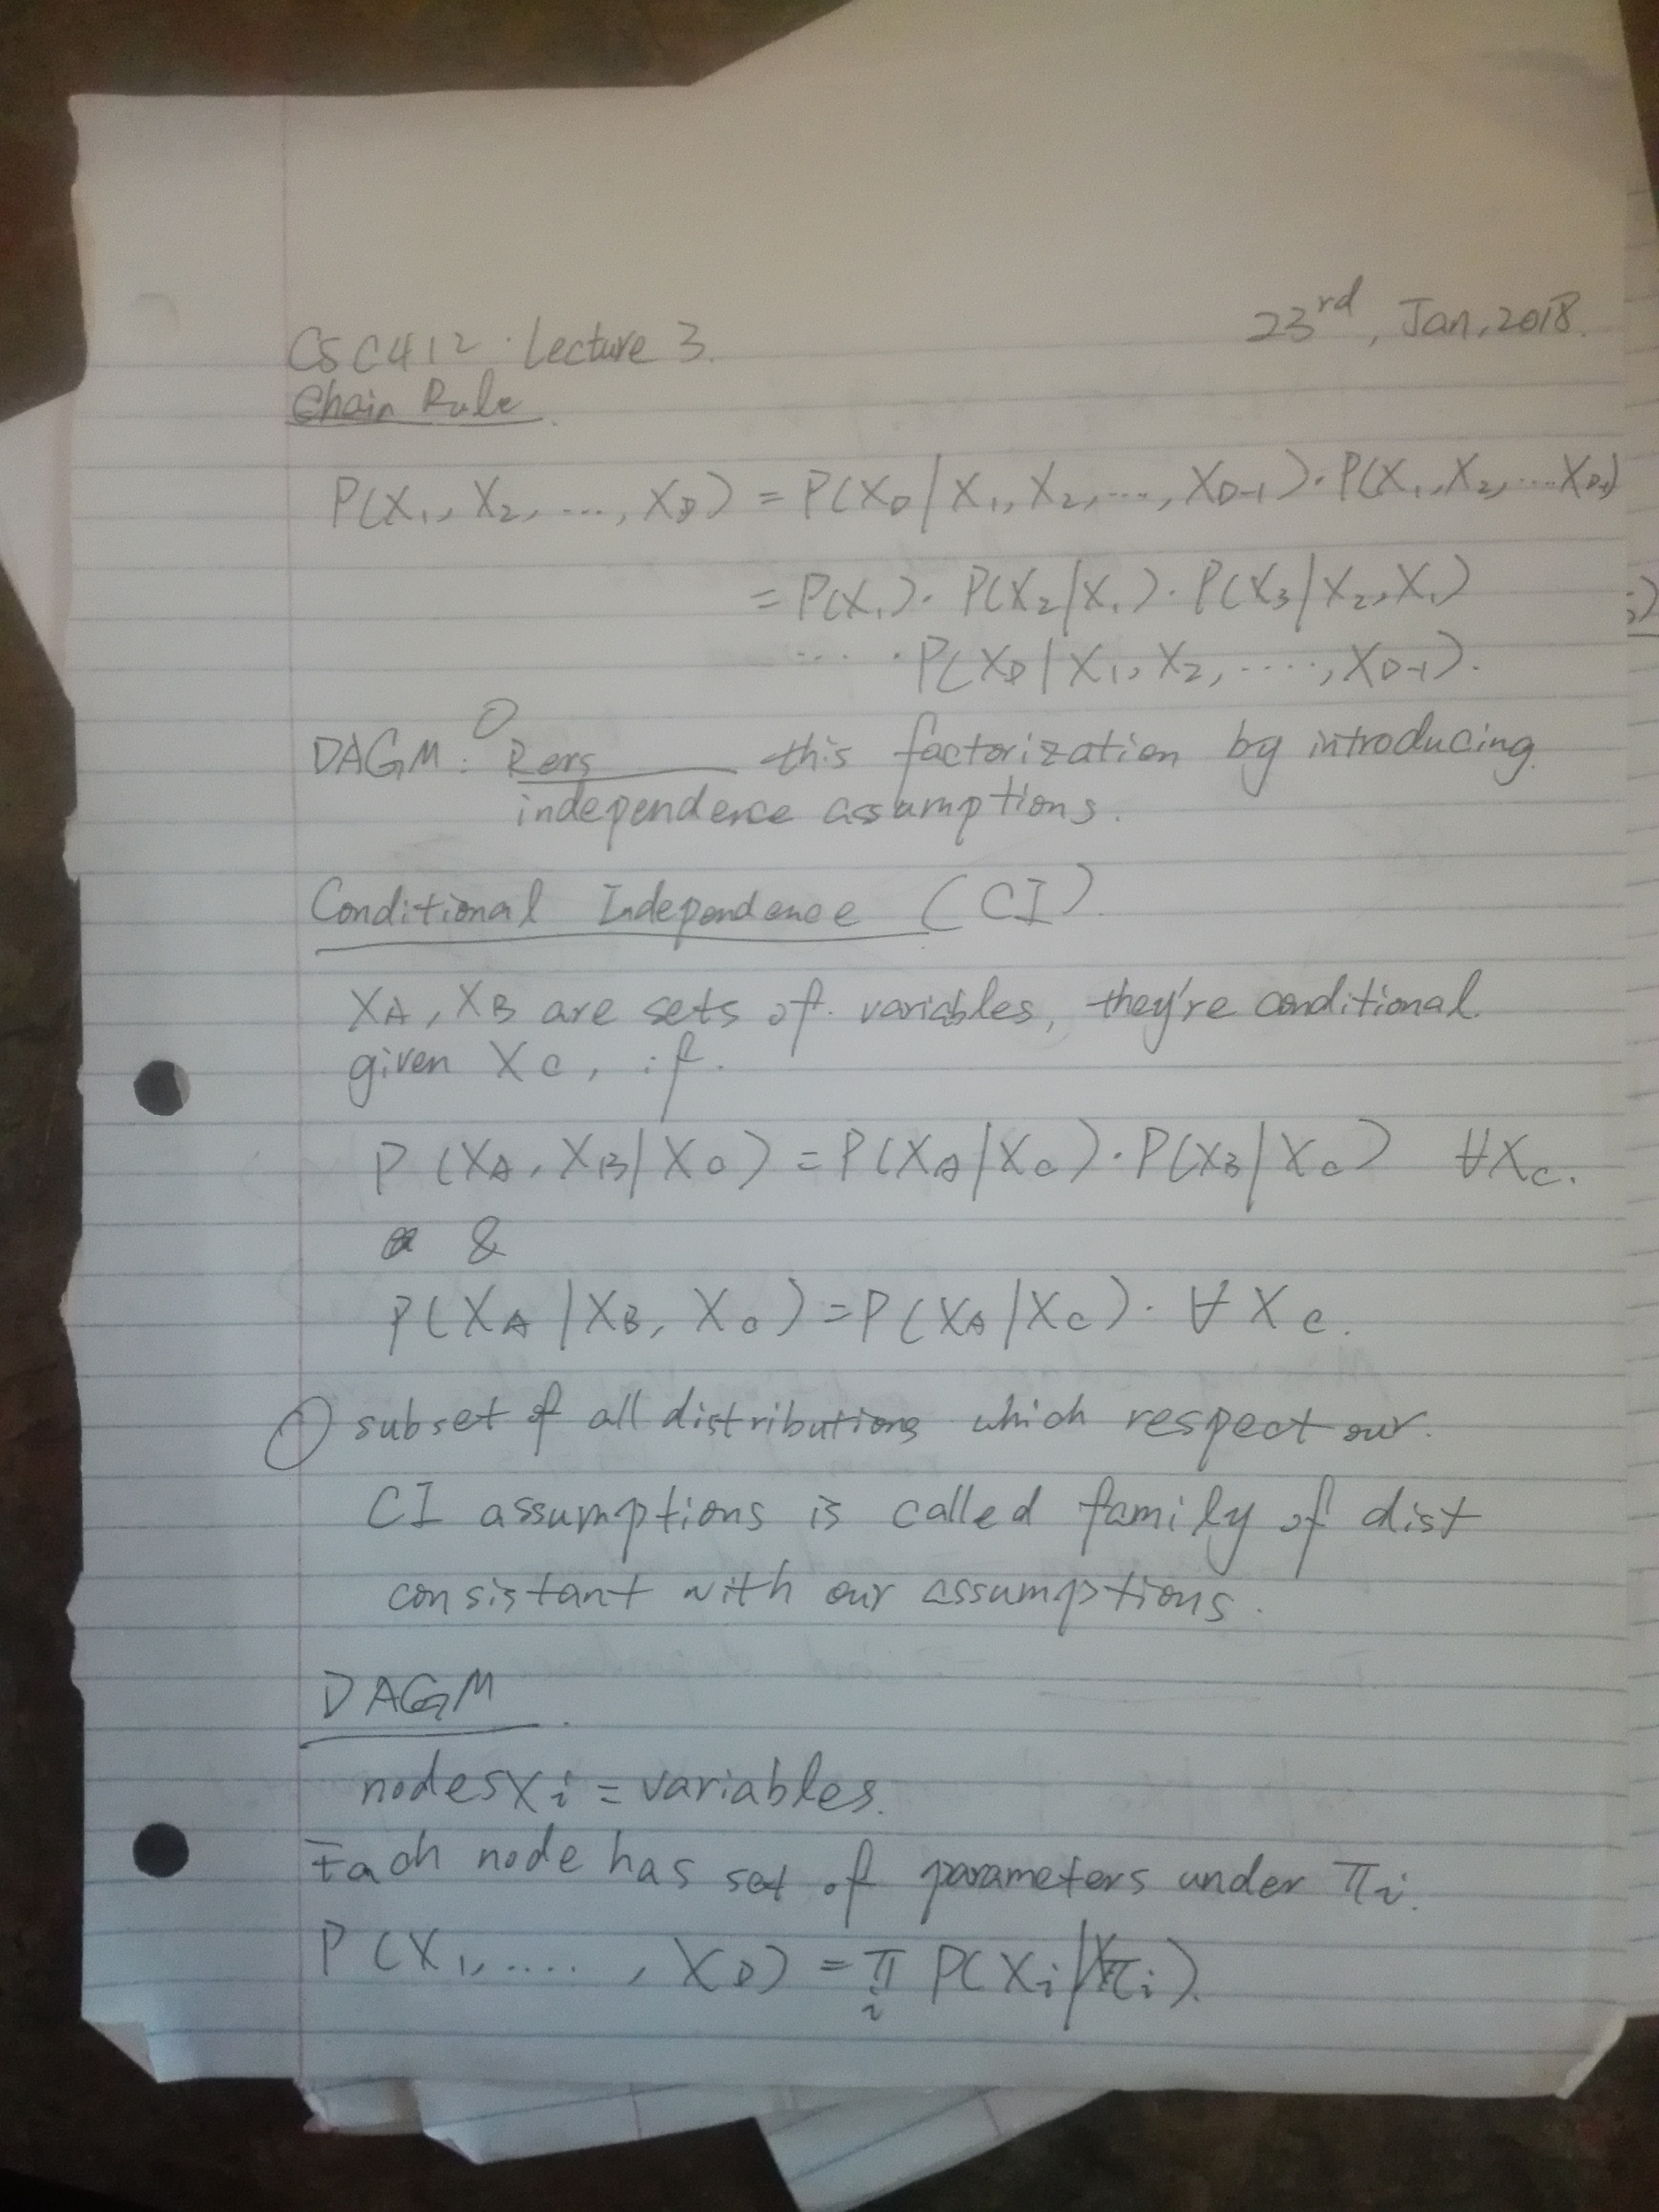 CSC412 Lecture 3.
23rd, Jan, 2018.
Chain Rule
P(X1, X2, ..., XD) = P(XD | X1, X2, ..., XD-1) · P(X1, X2, ... XD-1)
= P(X1) · P(X2 | X1) · P(X3 | X2, X1)
... · P(XD | X1, X2, ....., XD-1).
DAGM: this factorization by introducing
independence assumptions.
Conditional Independence (CI).
XA, XB are sets of variables, they're conditional
given XC, if.
P(XA, XB | XC) = P(XA | XC) · P(XB | XC) ∀XC.
&
P(XA | XB, XC) = P(XA | XC) · ∀ XC.
subset of all distributions which respect our
CI assumptions is called family of dist
consistant with our assumptions.
DAGM
nodes Xi = variables.
Each node has set of parameters under πi.
P(X1, ...., XD) = π i P(Xi | Xπi).